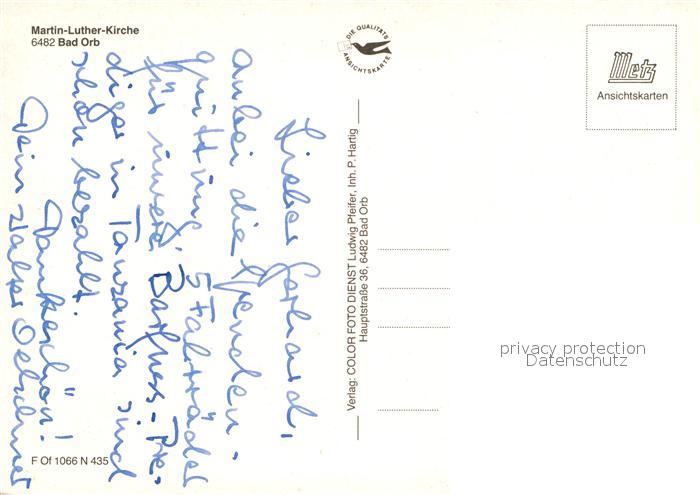 Martin-Luther-Kirche
6482 Bad Orb
DIE QUALITÄTS
ANSICHTSKARTE
Metz
Ansichtskarten
Lieber Gerhard,
anbei die Spenden-
quittung. 5 Fahrräder
für unsere Barfuss-Pre-
diger in Tanzania sind
schon bezahlt.
Dankeschön!
Dein Walter
Verlag: COLOR FOTO DIENST Ludwig Pfeifer, Inh. P. Hartig
Hauptstraße 36, 6482 Bad Orb
privacy protection
Datenschutz
F Of 1066 N 435